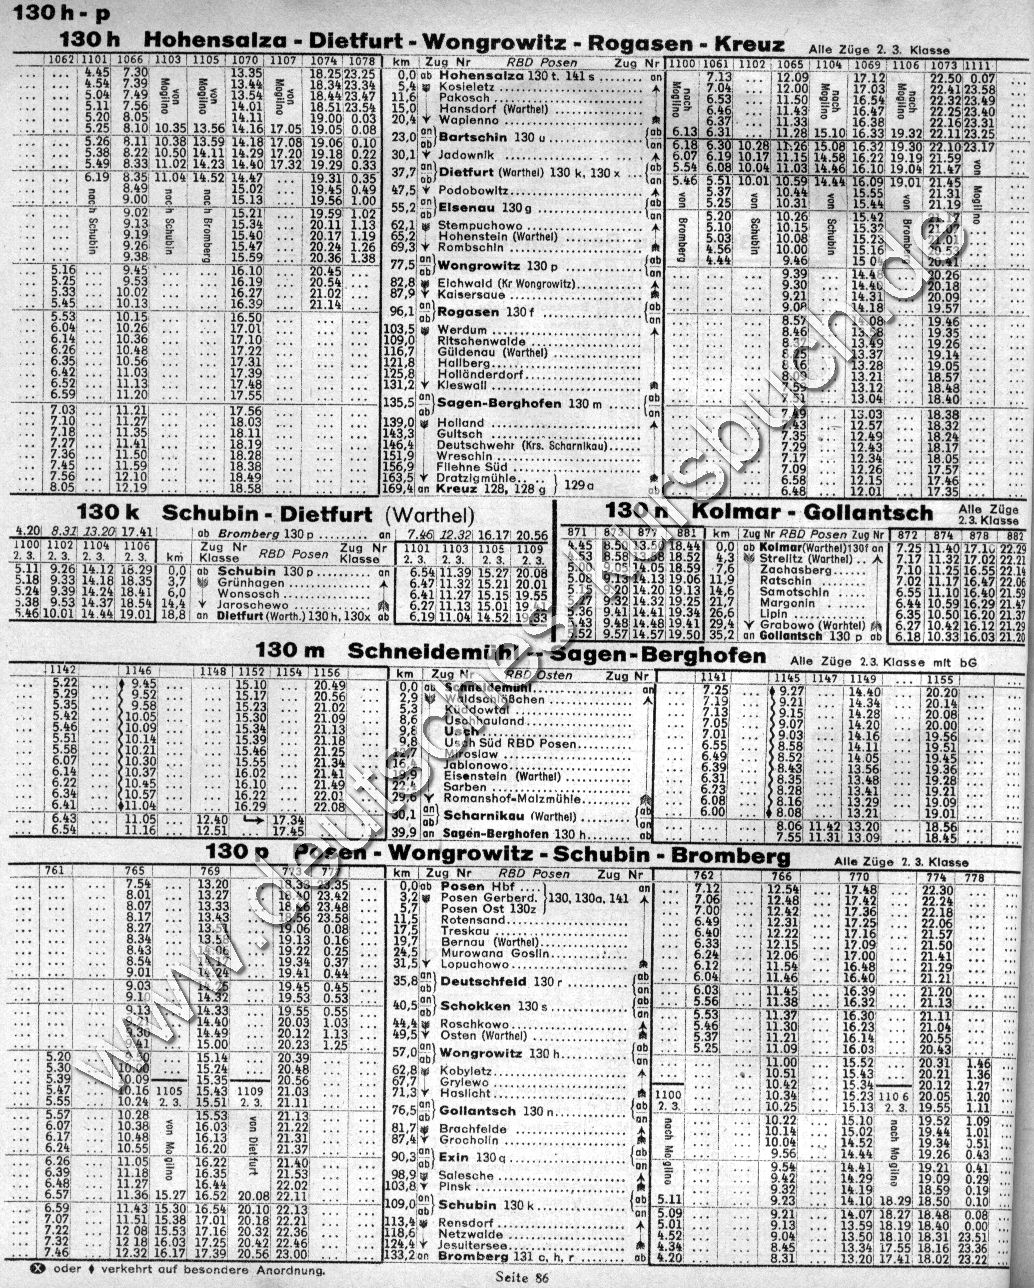 130 h - p
130 h Hohensalza - Dietfurt - Wongrowitz - Rogasen - Kreuz Alle Züge 2. 3. Klasse
1062 1101 1066 1103 1105 1070 1107 1074 1078 km Zug Nr RBD Posen Zug Nr 1100 1061 1102 1065 1104 1069 1106 1073 1111
... 4.45 7.30 13.35 ... 18.25 23.25 0,0 ab Hohensalza 130 t. 141 s an 7.13 ... 12.09 17.12 22.50 0.07
... 4.54 7.39 13.44 18.34 23.34 5,4 Kosieletz 7.04 ... 12.00 17.03 22.41 23.58
... 5.04 7.49 13.54 18.44 23.47 11,6 Pakosch 6.53 ... 11.50 16.54 22.32 23.49
... 5.11 7.56 14.01 18.51 23.54 15,0 Hansdorf (Warthel) 6.46 ... 11.43 16.47 22.25 23.40
... 5.20 8.05 14.11 19.00 0.03 20,4 Waplenno 6.37 ... 11.33 16.38 22.16 23.31
... 5.25 8.10 10.35 13.56 14.16 17.05 19.05 0.08 23,0 an Bartschin 130 u ab 6.13 6.31 ... 11.28 15.10 16.33 19.32 22.11 23.25
... 5.26 8.11 10.38 13.59 14.18 17.08 19.06 0.10 ab an 6.18 6.30 10.28 11.26 15.08 16.32 19.30 22.10 23.17
... 5.38 8.22 10.50 14.11 14.29 17.20 19.18 0.22 30,1 Jadownik 6.07 6.19 10.17 11.15 14.58 16.22 19.19 21.59
... 5.49 8.33 11.02 14.23 14.40 17.32 19.29 0.33 37,7 an Dietfurt (Warthel) 130 k, 130 x ab 5.54 6.08 10.04 11.03 14.46 16.10 19.04 21.47
... 6.19 8.35 11.04 14.52 14.47 ... 19.31 0.35 ab an 5.46 5.51 10.01 10.59 14.44 16.09 19.01 21.45
8.49 15.02 19.45 0.49 47,5 Podobowitz 5.37 10.44 15.55 21.31
9.00 15.13 19.56 1.00 55,2 an Elsenau 130 g ab 5.25 10.31 15.44 21.19
9.02 15.21 19.59 1.02 ab an 5.20 10.26 15.42
9.13 15.34 20.11 1.13 62,1 Stempuchowo 5.10 10.15 15.32
9.19 15.40 20.17 1.19 65,2 Hohenstein (Warthel) 5.03 10.08 15.23
9.26 15.47 20.24 1.26 69,3 Rombschin 4.56 10.00 15.16
9.38 15.59 20.36 1.38 77,5 an Wongrowitz 130 p ab 4.44 9.46
5.16 9.45 16.10 20.45 ab an 9.39 20.26
5.25 9.53 16.19 20.54 82,8 Elchwald (Kr Wongrowitz) 9.30 20.18
5.33 10.02 16.27 21.02 87,9 Kaisersaue 9.21 14.31 20.09
5.45 10.13 16.39 21.14 96,1 an Rogasen 130 f ab 9.08 14.18 19.57
5.53 10.15 16.50 ab an 8.57 19.46
6.04 10.26 17.01 103,5 Werdum 8.46 19.35
6.14 10.36 17.10 109,0 Ritschenwalde 13.49 19.26
6.26 10.48 17.22 116,7 Güldenau (Warthel) 13.37 19.14
6.35 10.56 17.31 121,8 Hallberg 13.28 19.05
6.42 11.03 17.39 125,8 Holländerdorf 13.21 18.57
6.52 11.13 17.48 131,2 Kleswall 7.59 13.12 18.48
6.59 11.20 17.55 135,5 an Sagen-Berghofen 130 m ab 7.51 13.04 18.40
7.03 11.21 17.56 ab an 7.49 13.03 18.38
7.10 11.27 18.03 139,0 Holland 7.43 12.57 18.32
7.18 11.35 18.11 143,3 Gultsch 7.35 12.49 18.24
7.27 11.41 18.19 146,4 Deutschwehr (Krs. Scharnikau) 7.29 12.43 18.17
7.36 11.50 18.28 151,9 Wreschin 7.17 12.34 18.05
7.45 11.59 18.38 156,9 Filehne Süd 7.09 12.26 17.57
7.56 12.10 18.49 163,5 Dratzigmühle 129 a 6.58 12.15 17.46
8.05 12.19 18.58 169,4 an Kreuz 128, 128 g ab 6.48 12.01 17.35
nach Schubin
von Mogilno
nach Schubin
von Mogilno
nach Bromberg
von Mogilno
nach Mogilno
von Bromberg
von Schubin
nach Mogilno
von Schubin
nach Mogilno
von Mogilno
130 k Schubin - Dietfurt (Warthel)
4.20 8.31 13.20 17.41 ab Bromberg 130 p an 7.46 12.32 16.17 20.56
1100 1102 1104 1106 km Zug Nr Klasse RBD Posen Zug Nr Klasse 1101 1103 1105 1109
2. 3. 2. 3. 2. 3. 2. 3. 2. 3. 2. 3. 2. 3. 2. 3.
5.11 9.26 14.12 18.29 0,0 ab Schubin 130 p an 6.54 11.39 15.27 20.08
5.18 9.33 14.18 18.35 3,7 Grünhagen 6.47 11.32 15.21 20.01
5.24 9.39 14.24 18.41 6,0 Wonsosch 6.41 11.27 15.15 19.55
5.38 9.53 14.37 18.54 14,4 Jaroschewo 6.27 11.13 15.01
5.46 10.01 14.44 19.01 18,8 an Dietfurt (Warth.) 130 h, 130x ab 6.19 11.04 14.52
130 n Kolmar - Gollantsch Alle Züge 2.3. Klasse
871 877 881 km Zug Nr RBD Posen Zug Nr 872 874 878 882
4.45 8.50 13.50 18.44 0,0 ab Kolmar (Warthel) 130 f an 7.25 11.40 17.10 22.29
18.52 4,3 Strelitz (Warthel) 7.17 11.32 17.02 22.21
14.05 18.59 7,6 Zachasberg 7.10 11.25 16.55 22.14
14.13 19.06 11,9 Ratschin 7.02 11.17 16.47 22.06
14.20 19.13 14,6 Samotschin 6.55 11.10 16.40 21.59
14.32 19.25 21,7 Margonin 6.44 10.59 16.29 21.47
9.41 14.41 19.34 26,6 Lipin 6.35 10.50 16.20 21.37
9.48 14.48 19.41 29,4 Grabowo (Warhtel) 6.27 10.42 16.12 21.29
9.57 14.57 19.50 35,2 an Gollantsch 130 p ab 6.18 10.33 16.03 21.20
130 m Schneidemühl - Sagen-Berghofen Alle Züge 2.3. Klasse mit bG
1142 1146 1148 1152 1154 1156 km Zug Nr RBD Osten Zug Nr 1141 1145 1147 1149 1155
5.22 9.45 15.10 20.49 0,0 ab Schneidemühl an 7.25 9.27 14.40 20.20
5.29 9.52 15.17 20.56 Waldschlößchen 7.19 9.21 14.34 20.14
5.35 9.58 15.23 21.02 5,3 Küddowtal 7.13 9.15 14.28 20.08
5.42 10.05 15.30 21.09 8,6 Uschhauland 7.05 9.07 14.20 20.00
5.46 10.09 15.34 21.13 Usch 7.01 9.03 14.16 19.56
5.51 10.14 15.39 21.18 9,8 Usch Süd RBD Posen 6.55 8.58 14.11 19.51
5.58 10.21 15.46 21.25 Miroslaw 6.49 8.52 14.05 19.45
6.07 10.30 15.55 21.34 Jablonowo 6.39 8.43 13.56 19.36
6.14 10.37 16.02 21.41 Eisenstein (Warthel) 6.31 8.35 13.48 19.28
6.22 10.45 16.10 21.49 Sarben 6.23 8.28 13.41 19.21
6.34 10.57 16.22 22.01 Romanshof-Malzmühle 6.08 8.16 13.29 19.09
6.41 11.04 16.29 22.08 30,1 an Scharnikau (Warthel) ab 6.00 8.08 13.21 19.01
6.43 11.05 12.40 17.34 ab an 8.06 11.42 13.20 18.56
6.54 11.16 12.51 17.45 39,9 an Sagen-Berghofen 130 h ab 7.55 11.31 13.09 18.45
130 p Posen - Wongrowitz - Schubin - Bromberg Alle Züge 2. 3. Klasse
761 765 769 773 km Zug Nr RBD Posen Zug Nr 762 766 770 774 778
7.54 13.20 23.35 0,0 ab Posen Hbf 130, 130a, 141 an 7.12 12.54 17.48 22.30
8.01 13.27 23.42 3,2 Posen Gerberd. 7.06 12.48 17.42 22.24
8.07 13.33 23.48 5,7 Posen Ost 130z 7.00 12.42 17.36 22.18
8.17 13.43 23.58 11,5 Rotensand 6.49 12.31 17.25 22.06
8.27 19.06 0.08 17,5 Treskau 6.40 12.22 17.16 21.57
8.34 19.13 0.16 19,7 Bernau (Warthel) 6.33 12.15 17.09 21.50
8.43 19.22 0.25 24,5 Murowana Goslin 6.24 12.06 17.00 21.41
8.54 19.34 0.37 31,5 Lopuchowo 6.12 11.54 16.48 21.29
9.01 19.41 0.44 35,8 an Deutschfeld 130 r ab 6.04 11.46 16.40 21.21
9.03 19.45 0.45 ab an 6.03 11.45 16.39 21.20
9.10 14.32 19.53 0.53 40,5 an Schokken 130 s ab 5.56 11.38 16.32 21.13
14.33 19.55 0.55 ab an 5.53 11.37 16.30 21.11
14.40 20.03 1.03 44,4 Roschkowo 5.46 11.30 16.23 21.04
14.49 20.12 1.13 49,5 Osten (Warthel) 5.37 11.21 16.14 20.55
15.00 20.23 1.25 57,0 an Wongrowitz 130 h ab 5.25 11.09 16.03 20.43
5.20 15.14 20.39 ab an 11.00 15.52 20.31 1.46
5.30 15.24 20.48 62,8 Kobyletz 10.51 15.43 20.21 1.36
5.39 15.35 20.56 67,7 Grylewo 10.42 15.34 20.12 1.27
5.47 10.16 1105 15.43 1109 21.03 71,3 Haslicht 1100 10.34 15.23 1106 20.05 1.20
5.55 10.24 2. 3. 15.51 2. 3. 21.11 76,5 an Gollantsch 130 n ab 2. 3. 10.25 15.13 2. 3. 19.55 1.11
5.57 10.28 15.53 21.13 ab an 10.22 15.10 19.52 1.09
6.07 10.38 16.03 21.22 81,7 Brachfelde 10.14 15.02 19.44 1.01
6.17 10.48 16.13 21.31 87,4 Grocholin 10.04 14.52 19.34
6.24 10.55 16.20 21.37 90,3 an Exin 130 q ab 9.56 14.44 19.26 0.43
6.26 11.05 16.22 21.40 ab an 9.54 14.41 19.21 0.41
6.39 11.18 16.35 21.53 98,9 Salesche 9.42 14.29 19.09 0.29
6.48 11.27 16.44 22.02 103,8 Pinsk 9.32 14.19 18.59 0.19
6.57 11.36 15.27 16.52 20.08 22.11 109,0 an Schubin 130 k ab 5.11 9.23 14.10 18.29 18.50 0.10
6.59 11.43 15.30 16.54 20.10 22.13 ab an 5.09 9.21 14.07 18.27 18.48 0.08
7.07 11.51 15.38 17.01 20.18 22.21 113,4 Rensdorf 5.01 9.13 13.59 18.19 18.40 0.00
7.22 12.08 15.53 17.16 20.32 22.36 118,6 Netzwalde 4.52 9.04 13.50 18.10 18.31 23.51
7.32 12.18 16.03 17.25 20.42 22.46 124,4 Jesuitersee 4.34 8.45 13.34 17.55 18.16 23.36
7.46 12.32 16.17 17.39 20.56 23.00 133,2 an Bromberg 131 c, h, r ab 4.20 8.31 13.20 17.41 18.02 23.22
von Mogilno
von Dietfurt
nach Mogilno
nach Mogilno
oder verkehrt auf besondere Anordnung.
Seite 86
www.deutsches-kursbuch.de